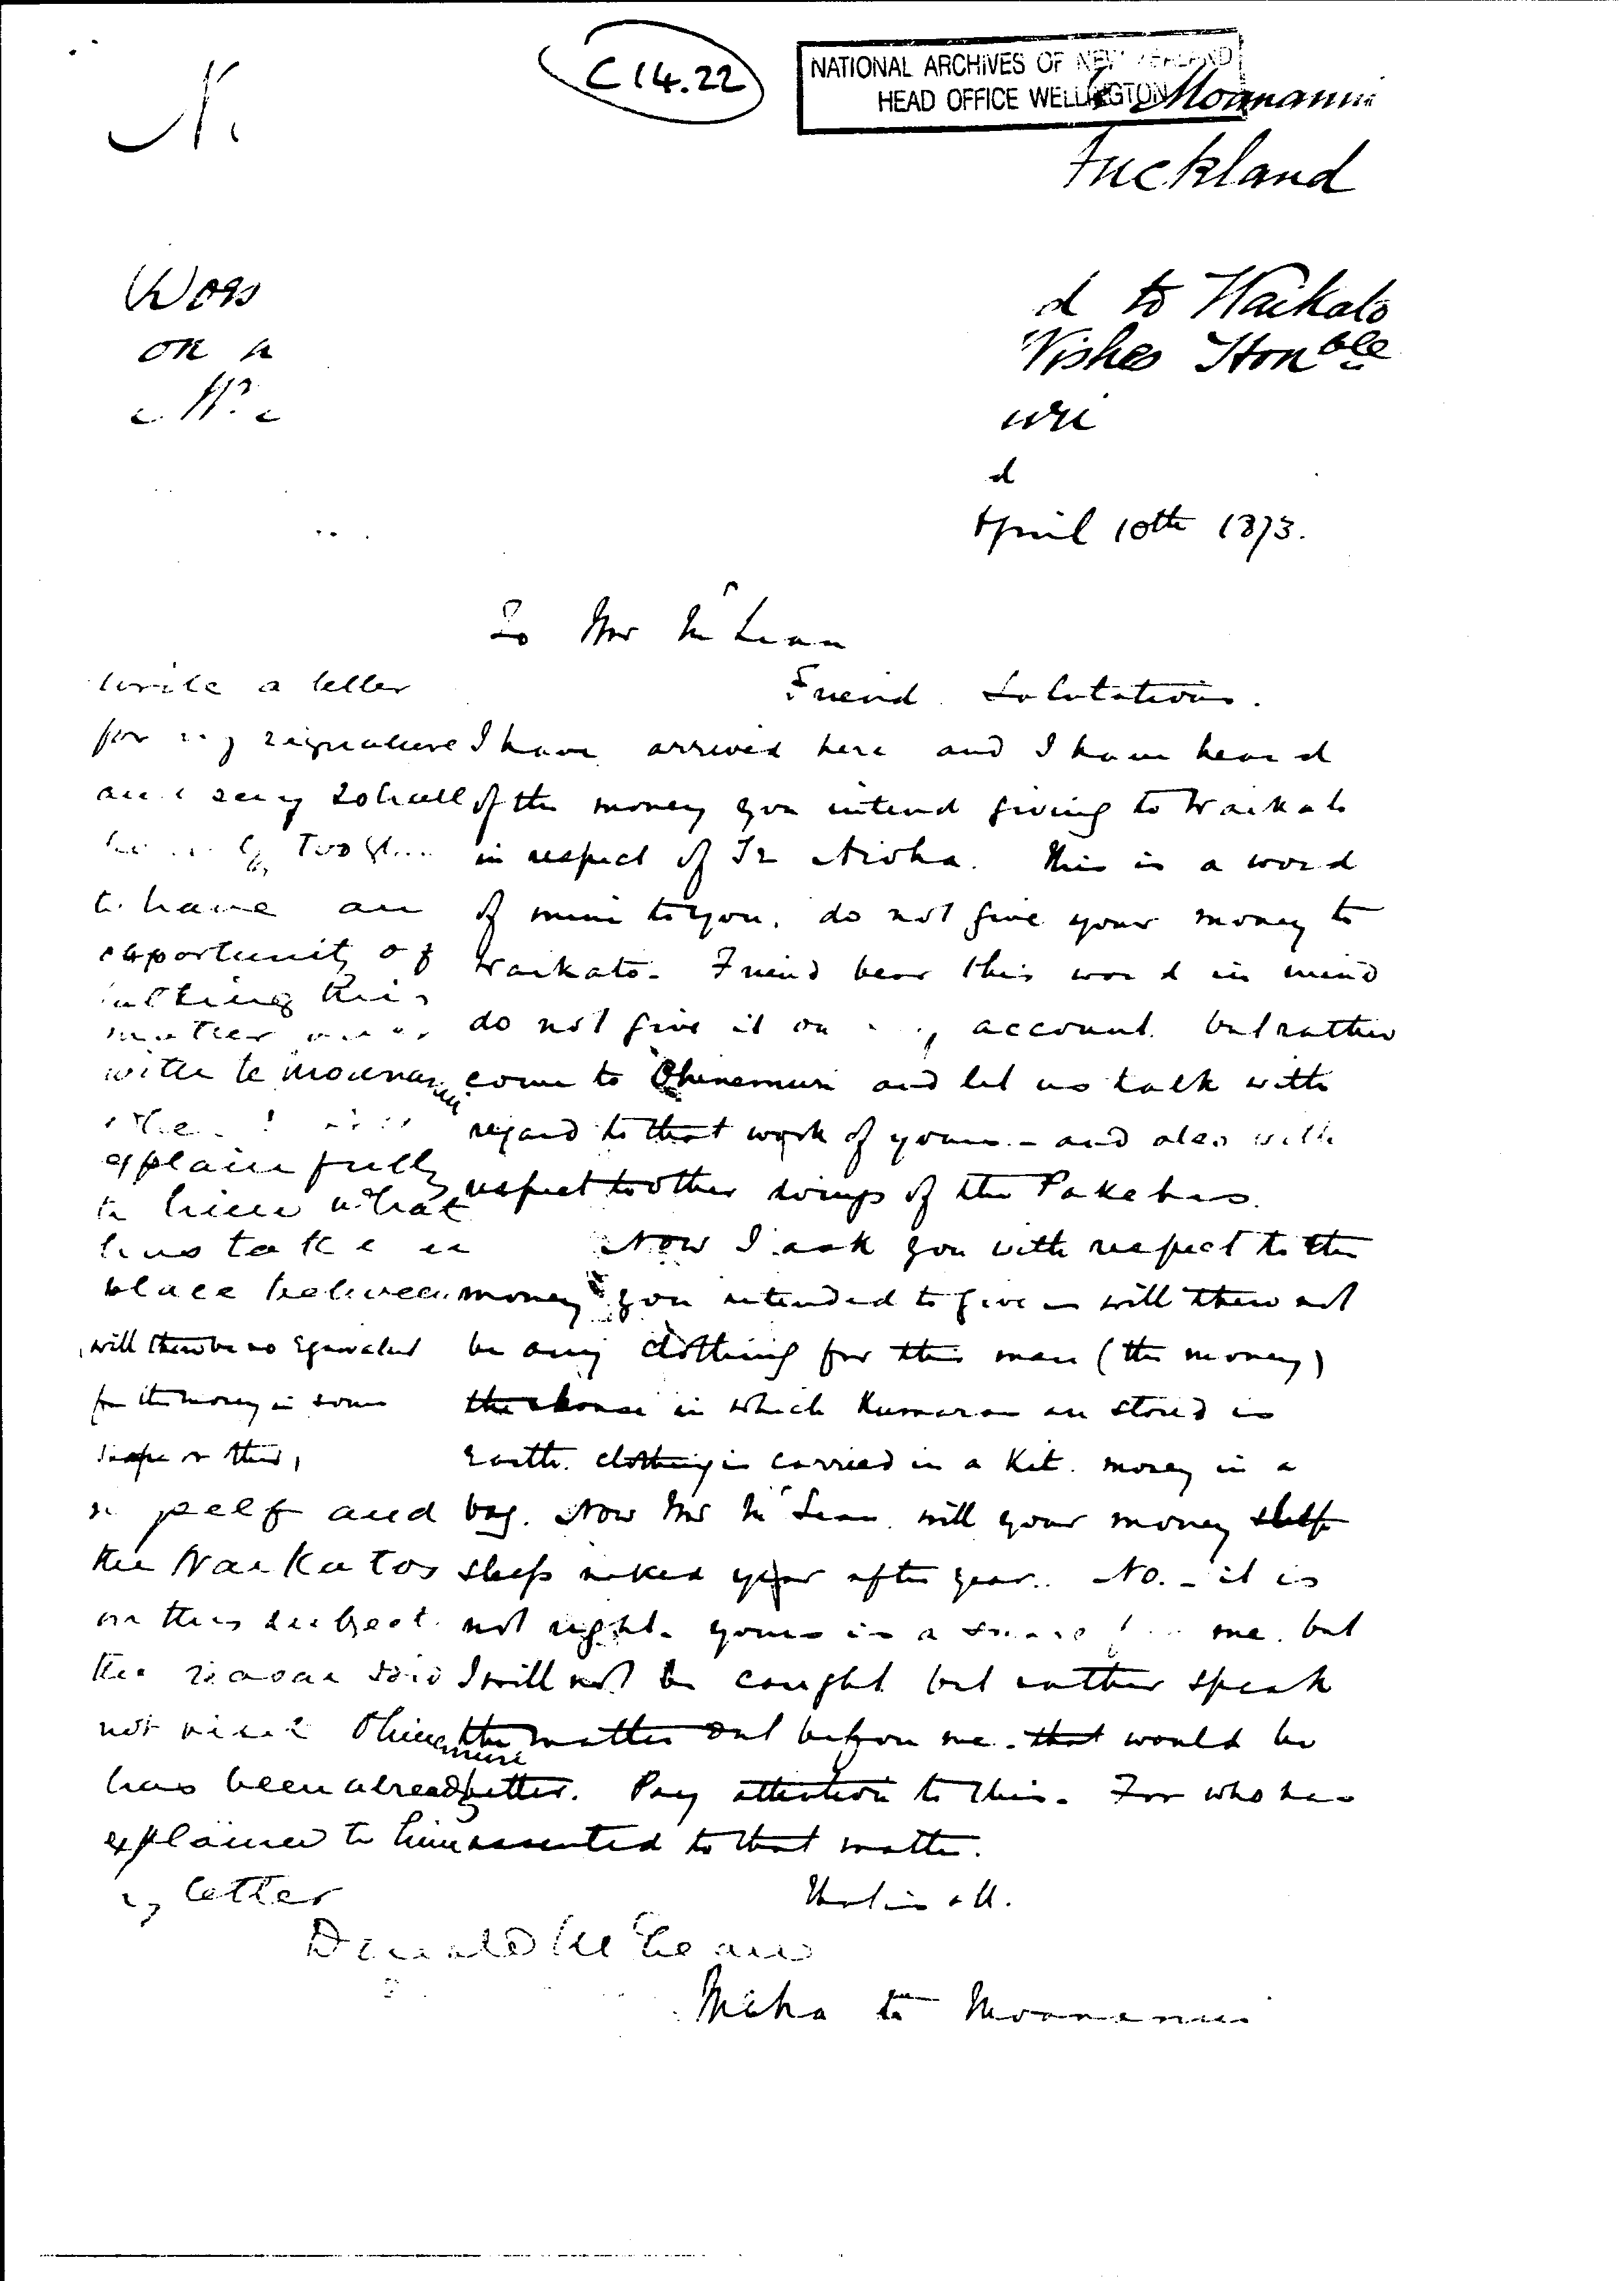 C 14.22
NATIONAL ARCHIVES OF NEW ZEALAND
HEAD OFFICE WELLINGTON
Moananui
Auckland
d to Waikato
on
Wishes Honble
d
April 10th 1873.
To Mr McLean
Friend Salutations.
I have arrived here and I have heard
of the money you intend giving to Waikato
in respect of Te Aroha. This is a word
of mine to you, do not give your money to
Waikato. Friend bear this word in mind
do not give it on account but rather
come to Ohinemuri and let us talk with
regard to that work of yours - and also with
respect to other doings of the Pakehas.
Now I ask you with respect to the
money you intended to give will there not
be any clothing for this man (the money)
the house in which Kumaras are stored is
Earth. clothing is carried in a Kit. money in a
bag. Now Mr McLean will your money
sleep naked year after year. No. - it is
not right. yours is a me. but
I will not be caught but rather speak
the matter out before me. that would be
better. Pay attention to this. For who has
assented to that matter.
Miha te Moananui
write a letter
for my signature
to have an
opportunity of
talking this
matter over
with te moananui
explain fully
to him what
has taken
place between
will there be no Equivalent
for the money in some
shape or this
self and
the Waikatos
on this subject
not visit Ohinemuri
has been already
explained to him
by letter
Donald McLean